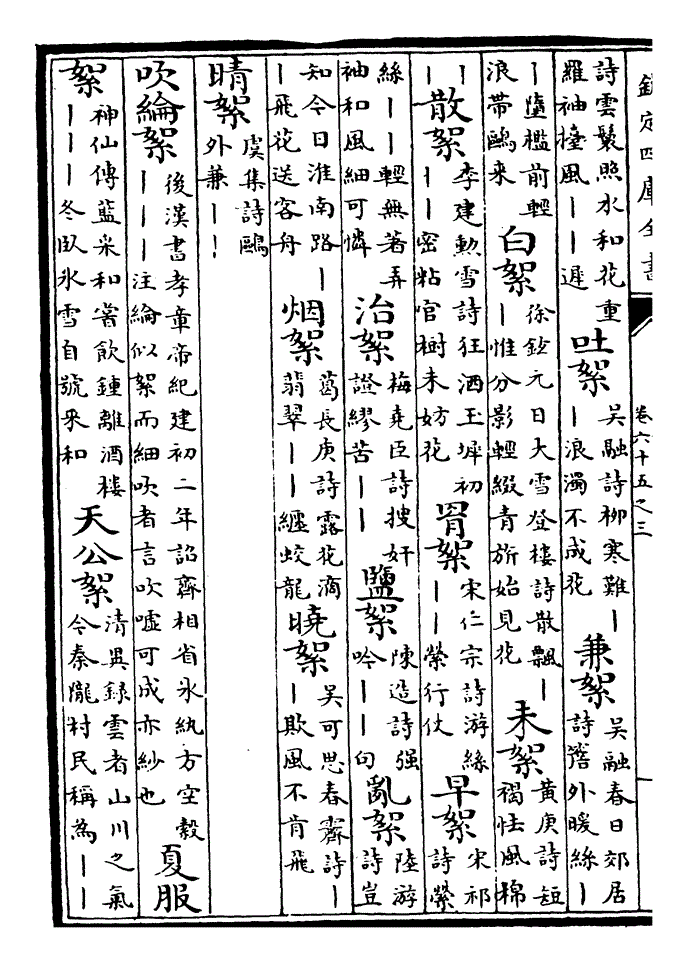 欽定四庫全書
卷六十五之三
詩雲鬟照水和花重
羅袖擡風｜｜遲
吐絮
吳融詩柳寒難｜
｜浪濁不成花
兼絮
吳融春日郊居
詩簷外暖絲｜
｜墮檻前輕
浪帶鷗來
白絮
徐鉉元日大雪登樓詩散飄｜
｜惟分影輕綴青旂始見花
未絮
黄庚詩短
褐怯風棉
｜｜
散絮
李建勲雪詩狂洒玉墀初
｜｜密粘官樹未妨花
罥絮
宋仁宗詩游絲
｜｜縈行仗
早絮
宋祁
詩縈
絲｜｜輕無著弄
袖和風細可憐
治絮
梅堯臣詩搜奸
證繆苦｜｜
鹽絮
陳造詩强
吟｜｜句
亂絮
陸游
詩豈
知今日淮南路｜
｜飛花送客舟
烟絮
葛長庚詩露花滴
翡翠｜｜纏蛟龍
曉絮
吳可思春霽詩｜
｜欺風不肯飛
晴絮
虞集詩鷗
外兼｜｜
吹綸絮
後漢書孝章帝紀建初二年詔齊相省氷紈方空縠
｜｜｜注綸似絮而細吹者言吹噓可成亦紗也
夏服
絮
神仙傳藍采和嘗飲鍾離酒樓
｜｜｜冬臥氷雪自號采和
天公絮
清異録雲者山川之氣
今秦隴村民稱為｜｜